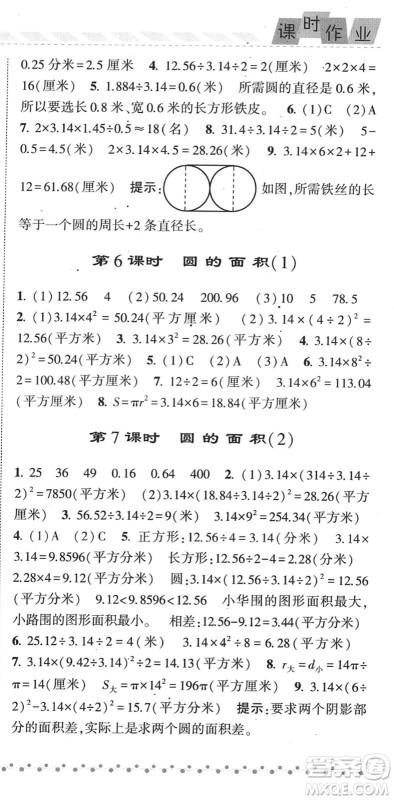 课时作业
0.25分米=2.5厘米 4. 12.56÷3.14÷2=2(厘米) 2×2×4=
16(厘米) 5. 1.884÷3.14=0.6(米) 所需圆的直径是0.6米,
所以要选长0.8米、宽0.6米的长方形铁皮。 6. (1)C (2)A
7. 2×3.14×1.45÷0.5≈18(名) 8. 31.4÷3.14÷2=5(厘米) 5-
0.5=4.5(厘米) 2×3.14×4.5=28.26(厘米) 9. 3.14×6×2+12+
12=61.68(厘米) 提示: 如图,所需铁丝的长
等于一个圆的周长+2条直径长。
第6课时 圆的面积(1)
1. (1)12.56 4 (2)50.24 200.96 (3)10 5 78.5
2. (1)3.14×4²=50.24(平方厘米) (2)3.14×(4÷2)²=
12.56(平方厘米) 3. 3.14×3²=28.26(平方米) 4. 3.14×(8÷
2)²=50.24(平方米) 5. (1)C (2)A (3)A 6. 3.14×8²÷
2=100.48(平方厘米) 7. 3.14×6²=113.04
(平方厘米) 8. S=πr²=3.14×6=18.84(平方厘米)
第7课时 圆的面积(2)
1. 25 36 49 0.16 0.64 400 2. (1)3.14×(314÷3.14÷
2)²=7850(平方米) (2)3.14×(18.84÷3.14÷2)²=28.26
(平方米) 3. 56.52÷3.14÷2=9(米) 3.14×9²=254.34(平方米)
4. (1)A (2)C 5. 正方形:12.56÷4=3.14(分米) 3.14×
3.14=9.8596(平方分米) 长方形:12.56÷2-4=2.28(分米)
2.28×4=9.12(平方分米) 圆:3.14×(12.56÷3.14÷2)²=12.56
(平方分米) 9.12<9.8596<12.56 小华围的图形面积最大,
小路围的图形面积最小。 相差:12.56-9.12=3.44(平方分米)
6. 25.12÷3.14÷2=4(米) 3.14×4²÷2=25.12(平方米)
7. 3.14×(9.42÷3.14)²÷2=14.13(平方米) 8. r大=d小=14 S小
=π×(14÷2)²=49π S大=π×14²=196π 9. 3.14×(6÷
2)²-3.14×(4÷2)²=15.7(平方厘米) 提示:求两个阴影部
分的面积差,实际上是求两个圆的面积差。